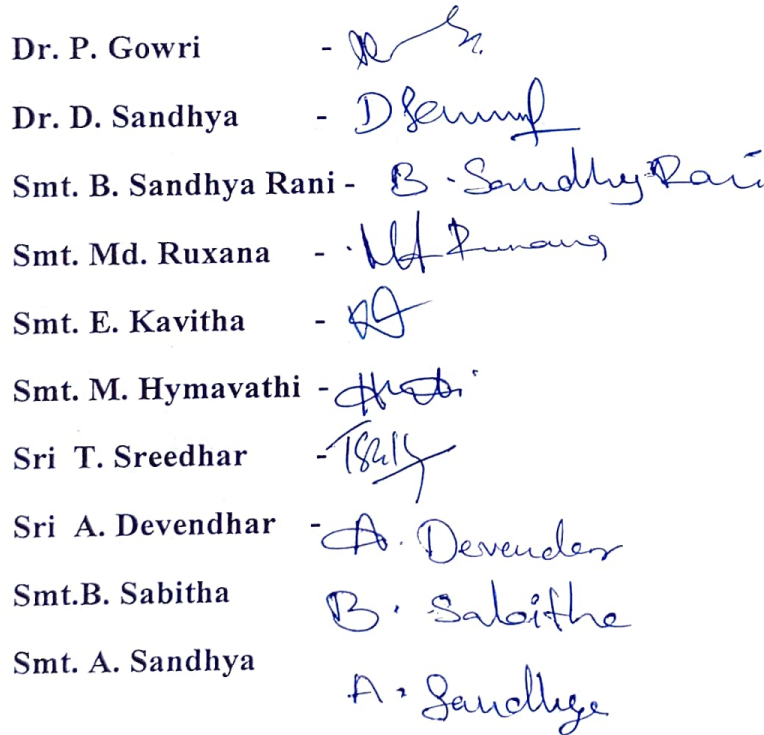 Dr. P. Gowri -
Dr. D. Sandhya - D
Smt. B. Sandhya Rani - B. Sandhya Rani
Smt. Md. Ruxana - Md
Smt. E. Kavitha -
Smt. M. Hymavathi -
Sri T. Sreedhar -
Sri A. Devendhar - A. Devender
Smt.B. Sabitha B. Sabitha
Smt. A. Sandhya A. Sandhya